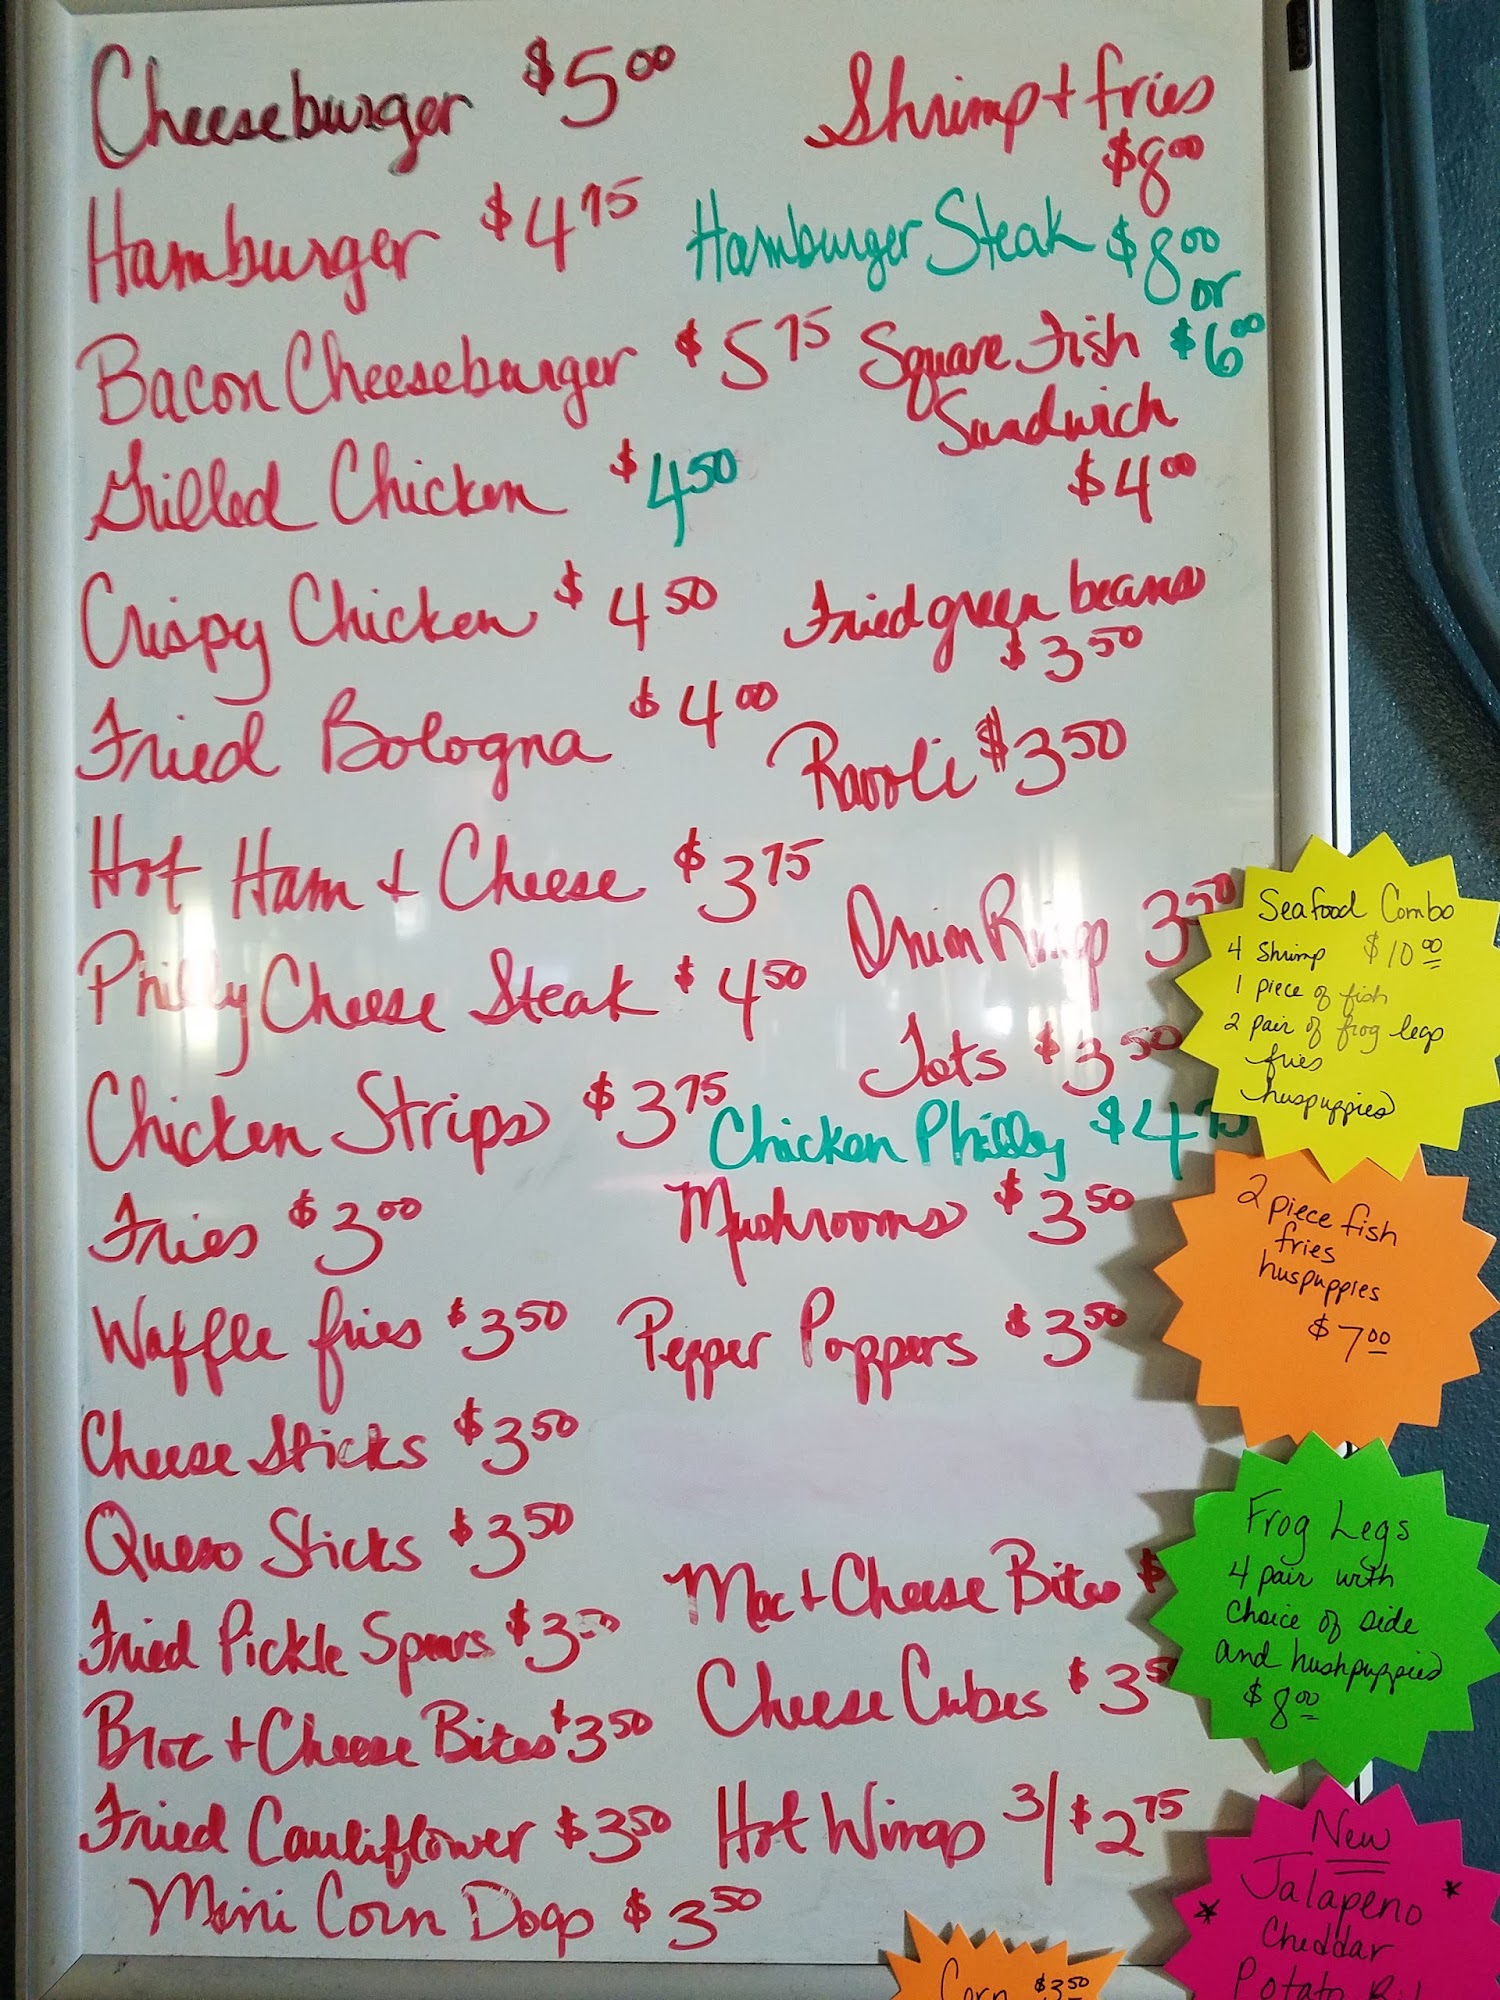 Cheeseburger $5.00
Hamburger $4.75
Bacon Cheeseburger $5.75
Grilled Chicken $4.50
Crispy Chicken $4.50
Fried Bologna $4.00
Hot Ham + Cheese $3.75
Philly Cheese Steak $4.50
Chicken Strips $3.75
Fries $3.00
Waffle fries $3.50
Cheese Sticks $3.50
Queso Sticks $3.50
Fried Pickle Spears $3.50
Broc + Cheese Bites $3.50
Fried Cauliflower $3.50
Mini Corn Dogs $3.50
Shrimp + fries
$8.00
Hamburger Steak $8.00
or
$6.00
Square Fish
Sandwich
$4.00
Fried green beans
$3.50
Ravoli $3.50
Onion Rings 3.50
Tots $3.50
Chicken Philly $4.75
Mushrooms $3.50
Pepper Poppers $3.50
Mac + Cheese Bites $
Cheese Cubes $3.5
Hot Wings 3/$2.75
Seafood Combo
4 Shrimp $10.00
1 piece of fish
2 pair of frog legs
fries
huspuppies
2 piece fish
fries
huspuppies
$7.00
Frog Legs
4 pair with
choice of side
and hushpuppies
$8.00
New
* Jalapeno *
Cheddar
Potato
Corn $3.50